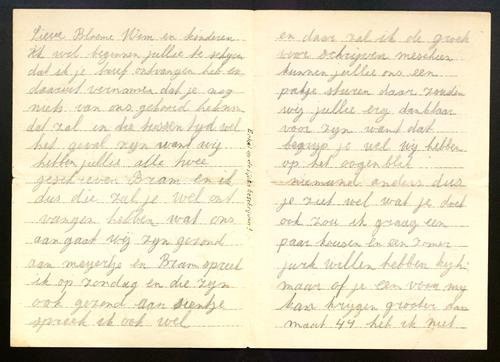 Lieve Bloeme Wim en kinderen
Ik wil beginnen jullie te schrijven
dat ik je brief ontvangen heb en
daaruit vernomen dat je nog
niets van ons gehoord hebt nu
dat zal in die tussentyd wel
het geval zyn want wy
hebben jullie alle twee
geschreven Bram en ik
dus die zal je wel ont
vangen hebben wat ons
aangaat wy zyn gezond
aan meyertje en Bram spreek
ik op zondag en die zyn
ook gezond aan sientje
spreek ik ook wel
en daar zal ik de groete
voor schryven misschien
kunnen jullie ons een
pakje sturen daar zouden
wy jullie erg dankbaar
voor zyn want dat
begryp je wel wy hebben
op het oogenblik
niemand anders dus
je ziet wel wat je doet
ook zou ik graag een
paar kousen en een zomer
jurk willen hebben kyk
maar of je een voor my
kan krygen grooter dan
maat 44 heb ik niet